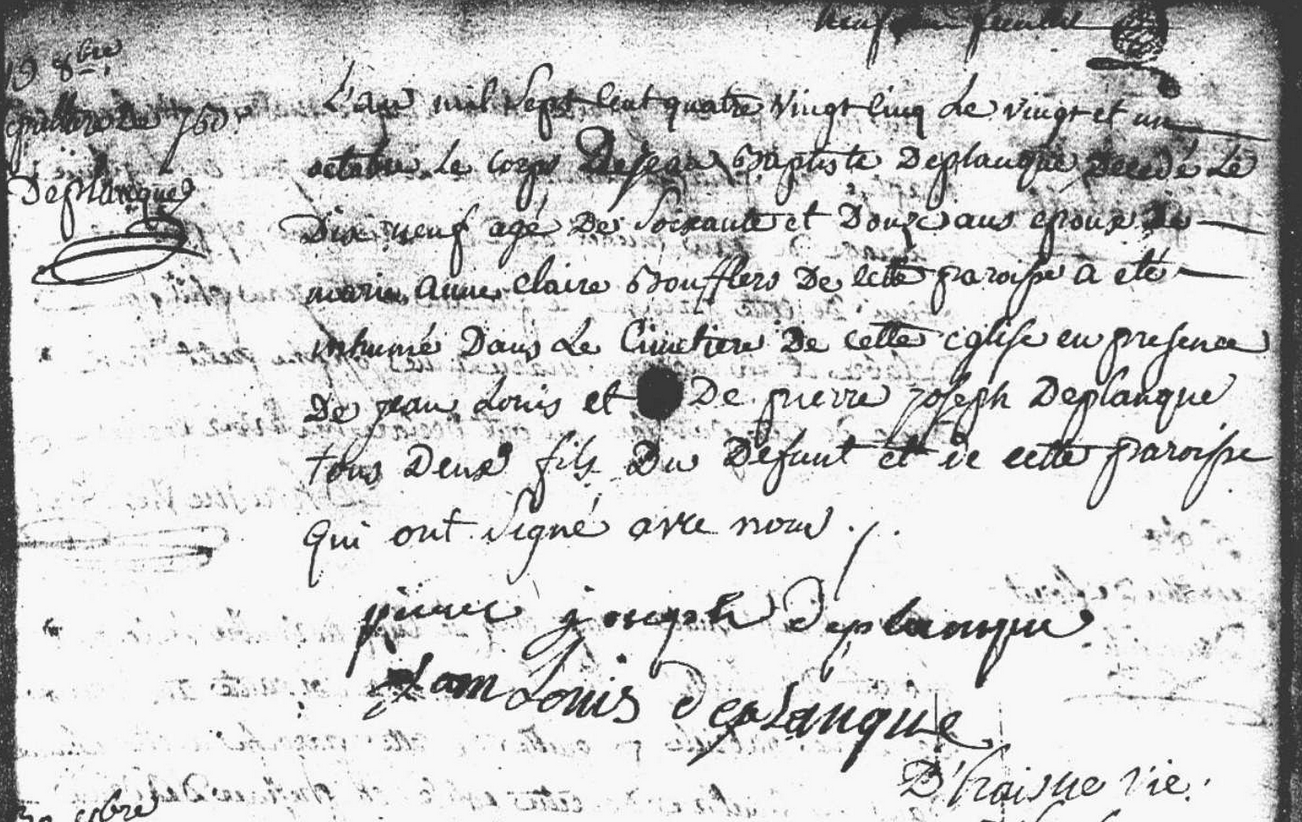 19 8bre
Deplanque
L'an mil sept cent quatre vingt cinq le vingt et un
octobre le corps de jean Baptiste Deplanque decedé le
Dix neuf agé De soixante et Douze ans epoux de
marie anne claire Boufflers De cette paroisse a eté
inhumé Dans Le Cimetiere De cette eglise en presence
De jean Louis et De pierre joseph Deplanque
tous Deux fils Du Defunt et de cette paroisse
qui ont signé avec nous ./.
pierre joseph deplanque
jean Louis deplanque